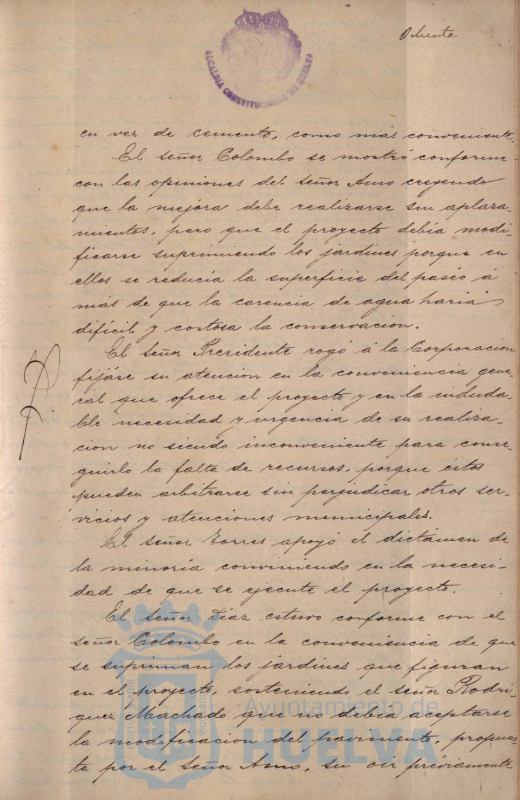 Ochenta
ALCALDÍA CONSTITUCIONAL DE HUELVA
en vez de cemento, como más conveniente.
El señor Colombo se mostró conforme
con las opiniones del señor Amo creyendo
que la mejora debe realizarse sin aplaza-
mientos, pero que el proyecto debia modi-
ficarse suprimiendo los jardines porque en
ellos se reducia la superficie del paseo á
más de que la carencia de agua haria
dificil y costosa la conservacion.
El señor Presidente rogó á la Corporacion
fijáse su atencion en la conveniencia gene-
ral que ofrece el proyecto y en la induda-
ble necesidad y urgencia de su realiza-
cion no siendo inconveniente para conse-
guirlo la falta de recursos, porque éstos
pueden arbitrarse sin perjudicar otros ser-
vicios y atenciones municipales.
El señor Torres apoyó el dictámen de
la minoría conviniendo en la necesi-
dad de que se ejecute el proyecto.
El señor Díaz estuvo conforme con el
señor Colombo en la conveniencia de que
se supriman los jardines que figuran
en el proyecto, sosteniendo el señor Rodri
guez Machado que no debia aceptarse
la modificacion del pavimento, propues-
ta por el señor Amo, sin oir préviamente
Ayuntamiento de
HUELVA